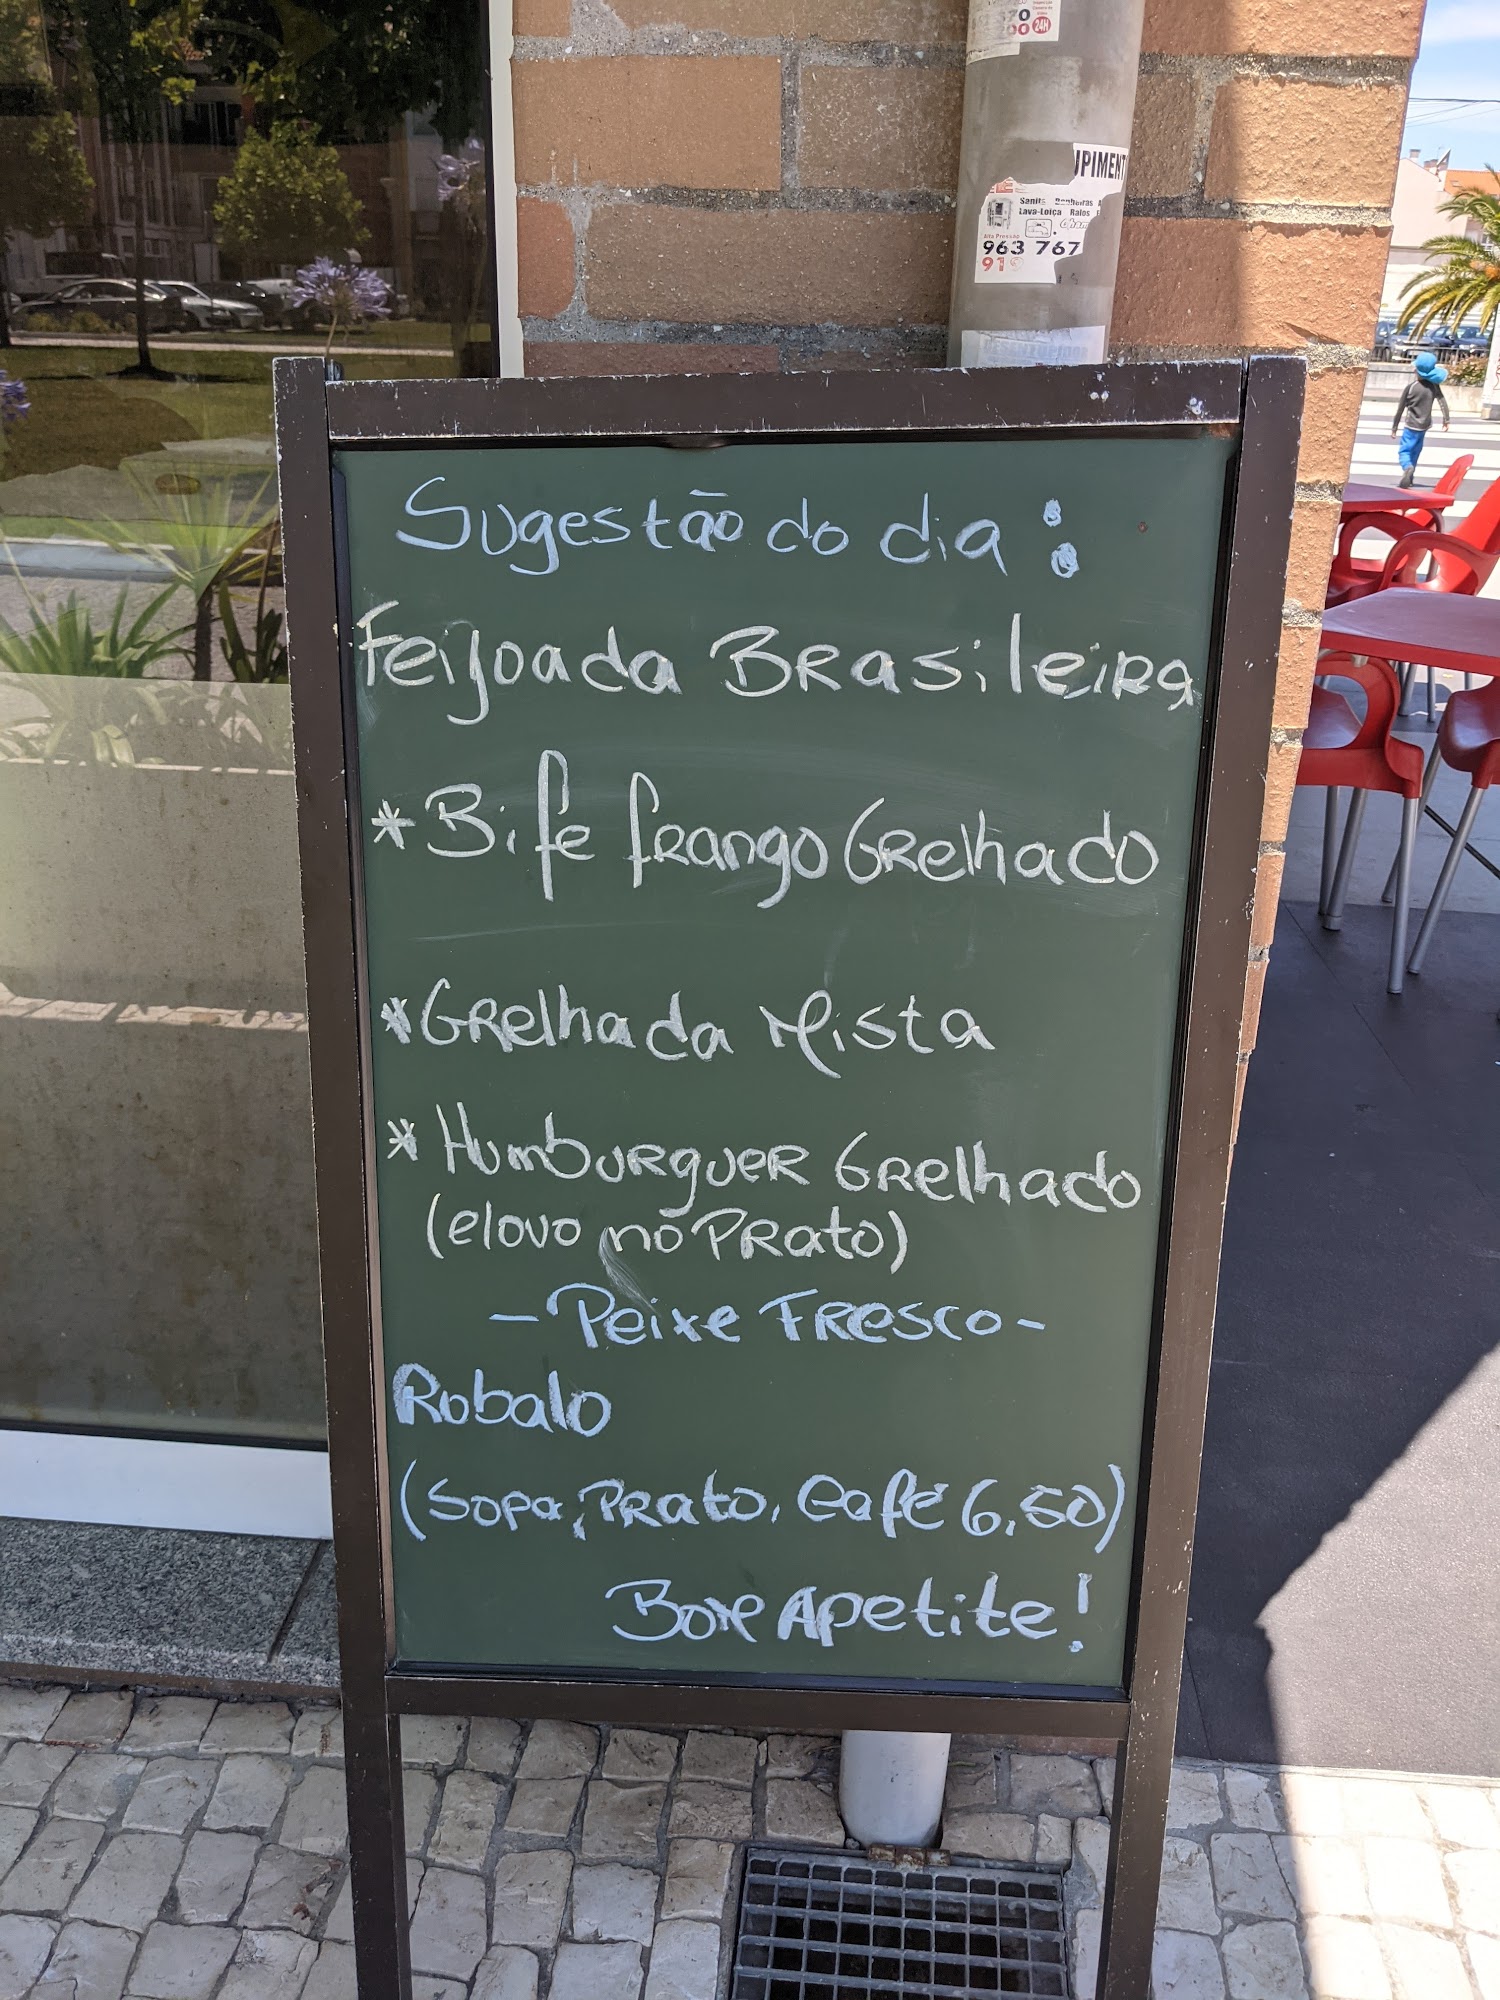 70
00 24H
UPIMENT
Sanita Banheiras A
Lava-Loiça Ralos
Alta Pressão
963 767
91
Sugestão do dia :
Feijoada Brasileira
* Bife frango Grelhado
* Grelhada Mista
* Humburguer Grelhado
(elovo no Prato)
- Peixe Fresco -
Robalo
(Sopa, Prato, Café 6,50)
Bom Apetite!